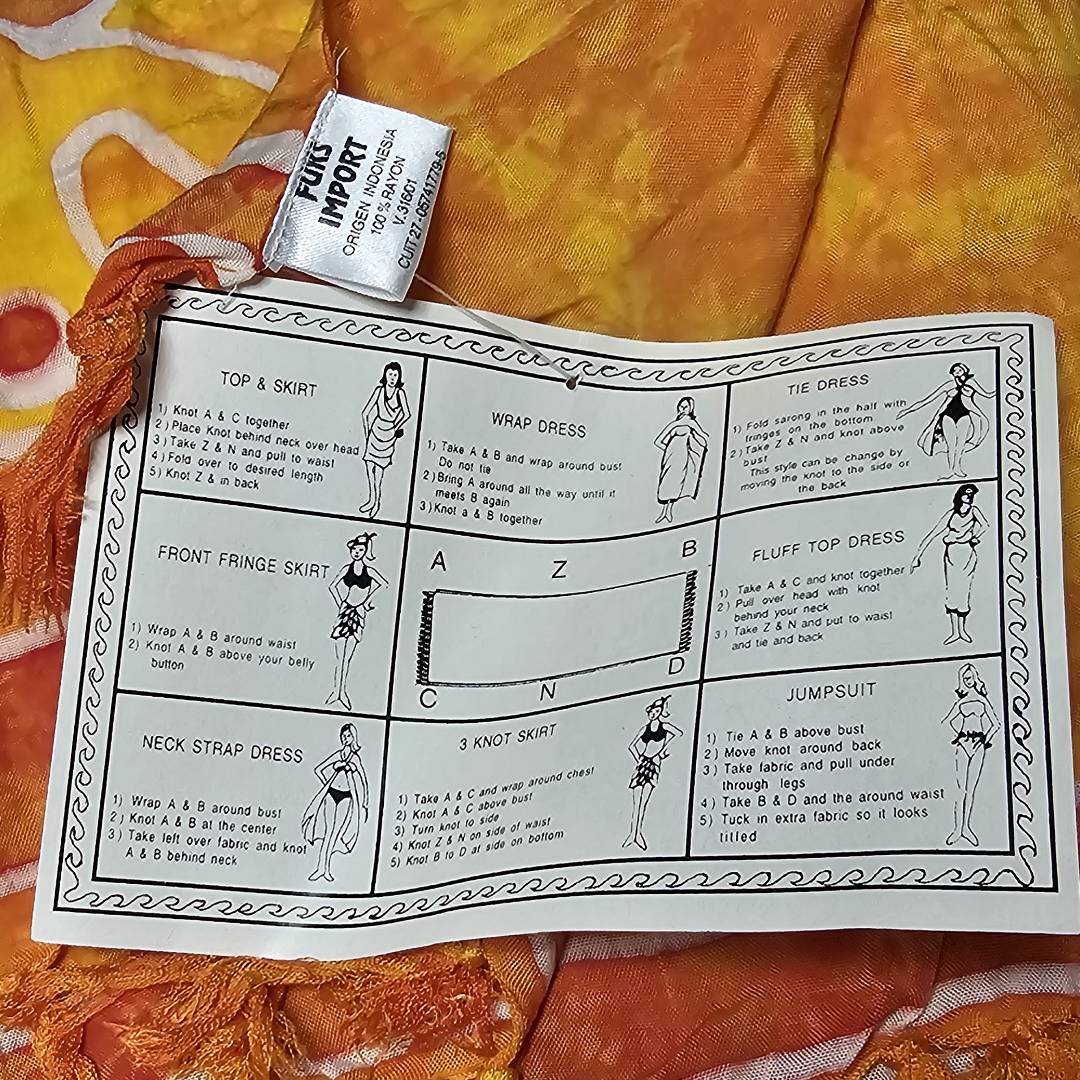 FUKS
IMPORT
ORIGEN INDONESIA
100 % RAYON
V. 31601
CUIT 27-05741779-6
TOP & SKIRT
1) Knot A & C together
2) Place Knot behind neck over head
3) Take Z & N and pull to waist
4) Fold over to desired length
5) Knot Z & in back
WRAP DRESS
1) Take A & B and wrap around bust
Do not tie
2) Bring A around all the way until it
meets B again
3) Knot a & B together
TIE DRESS
1) Fold sarong in the half with
fringes on the bottom
2) Take Z & N and knot above
bust
This style can be change by
moving the knot to the side or
the back
FRONT FRINGE SKIRT
1) Wrap A & B around waist
2) Knot A & B above your belly
button
A
Z
B
C
N
D
FLUFF TOP DRESS
1) Take A & C and knot together
2) Pull over head with knot
behind your neck
3) Take Z & N and put to waist
and tie and back
NECK STRAP DRESS
1) Wrap A & B around bust
2) Knot A & B at the center
3) Take left over fabric and knot
A & B behind neck
3 KNOT SKIRT
1) Take A & C and wrap around chest
2) Knot A & C above bust
3) Turn knot to side
4) Knot Z & N on side of waist
5) Knot B to D at side on bottom
JUMPSUIT
1) Tie A & B above bust
2) Move knot around back
3) Take fabric and pull under
through legs
4) Take B & D and the around waist
5) Tuck in extra fabric so it looks
titled